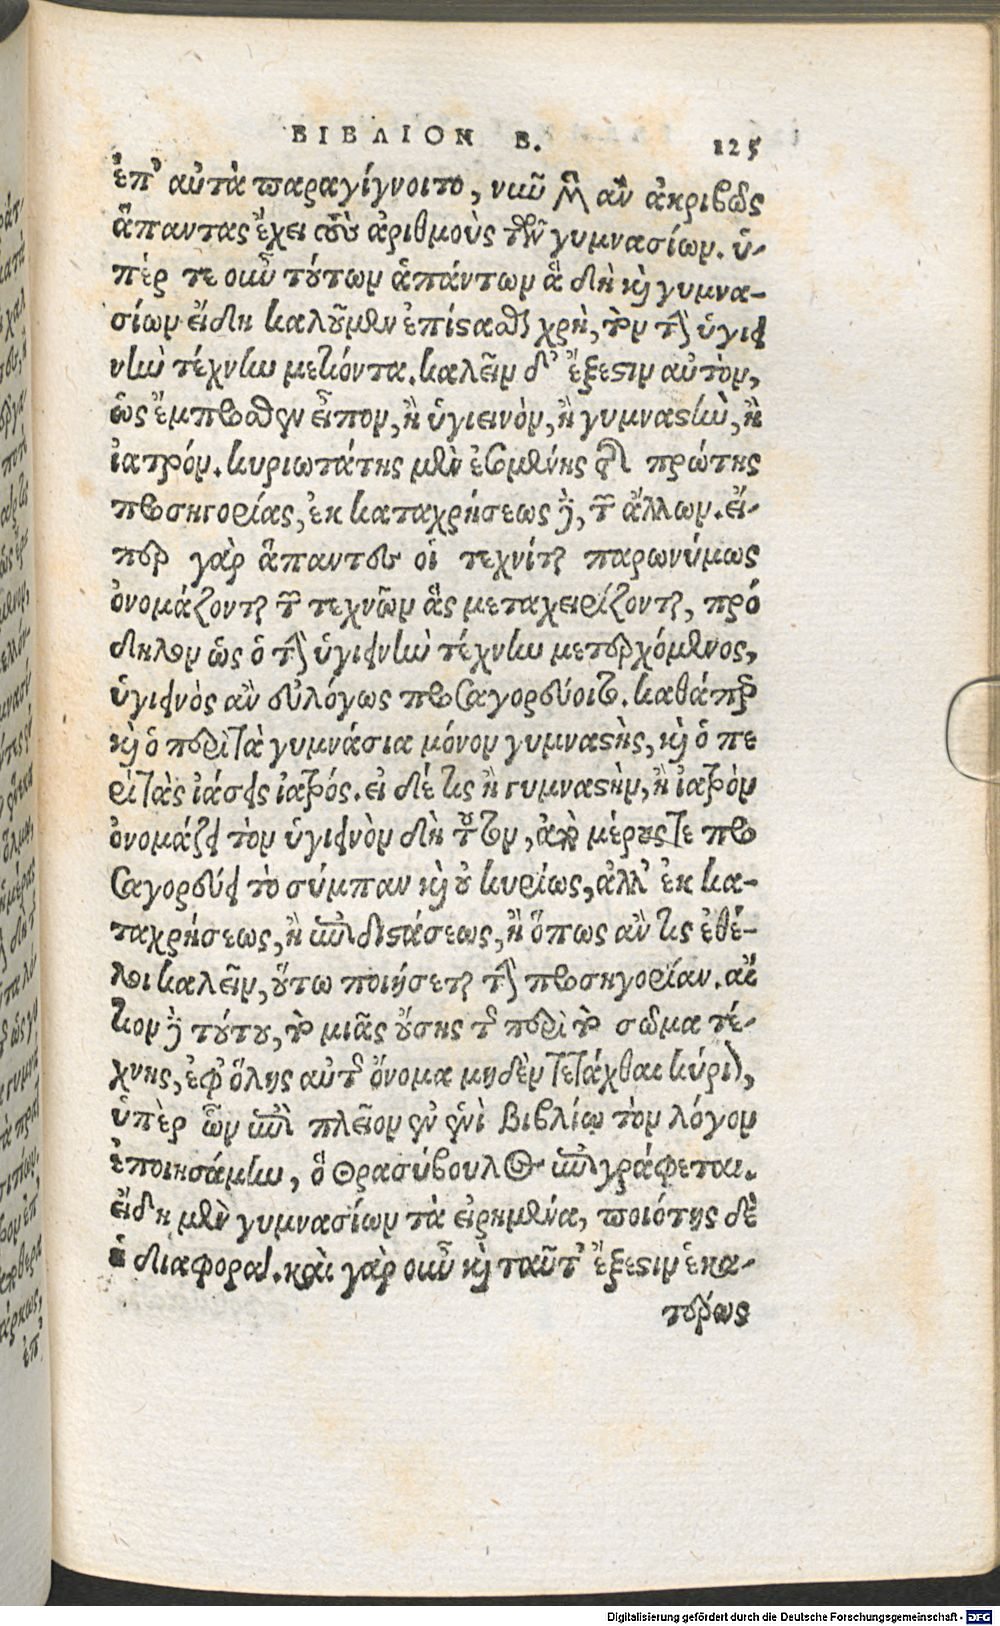 ΒΙΒΛΙΟΝ Β. 125
ἐπ' αὐτὰ παραγίγνοιτο, νῦν μὴ ἂν ἀκριβῶς
ἅπαντας ἔχει τοὺς ἀριθμοὺς τῶν γυμνασίων. ὑ-
πέρ τε οὖν τούτων ἁπάντων ἃ δὴ καὶ γυμνα-
σίων εἴδη καλοῦμεν ἐπίστασθαι χρὴ, τὸν τὴν ὑγιει
νὴν τέχνην μετιόντα. καλεῖν δ' ἔξεστιν αὐτὸν,
ὡς ἔμπροσθεν εἶπον, ἢ ὑγιεινὸν, ἢ γυμναστὴν, ἢ
ἰατρόν. κυριωτάτης μὲν ἐσομένης τῆς πρώτης
προσηγορίας, ἐκ καταχρήσεως δὲ, τῶν ἄλλων. εἴ-
περ γὰρ ἅπαντες οἱ τεχνῖται παρωνύμως
ὀνομάζονται τῶν τεχνῶν ἃς μεταχειρίζονται, πρό
δηλον ὡς ὁ τὴν ὑγιεινὴν τέχνην μετερχόμενος,
ὑγιεινὸς ἂν εὐλόγως προσαγορεύοιτο. καθάπερ
καὶ ὁ περὶ τὰ γυμνάσια μόνον γυμναστὴς, καὶ ὁ πε
ρὶ τὰς ἰάσεις ἰατρός. εἰ δέ τις ἢ γυμναστὴν, ἢ ἰατρὸν
ὀνομάζει τὸν ὑγιεινὸν δὴ τοῦτον, ἀπὸ μέρους τε προ
σαγορεύει τὸ σύμπαν καὶ οὐ κυρίως, ἀλλ' ἐκ κα-
ταχρήσεως, ἢ παραδιαστάσεως, ἢ ὅπως ἂν τις ἐθέ-
λοι καλεῖν, οὕτω ποιήσεται τὴν προσηγορίαν. αἴ
τιον δὲ τούτου, τὸ μιᾶς οὔσης τῆς περὶ τὸ σῶμα τέ-
χνης, ἐφ' ὅλης αὐτῆς ὄνομα μηδὲν τετάχθαι κύριον,
ὑπὲρ ὧν ἐπὶ πλεῖον ἐν ἑνὶ βιβλίῳ τὸν λόγον
ἐποιησάμην, ὃ Θρασύβουλος ἐπιγράφεται.
εἴδη μὲν γυμνασίων τὰ εἰρημένα, ποιότης δὲ
ἡ διαφορά. καὶ γὰρ οὖν καὶ ταῦτ' ἔξεστιν ἑκα-
τέρως
Digitalisierung gefördert durch die Deutsche Forschungsgemeinschaft - DFG